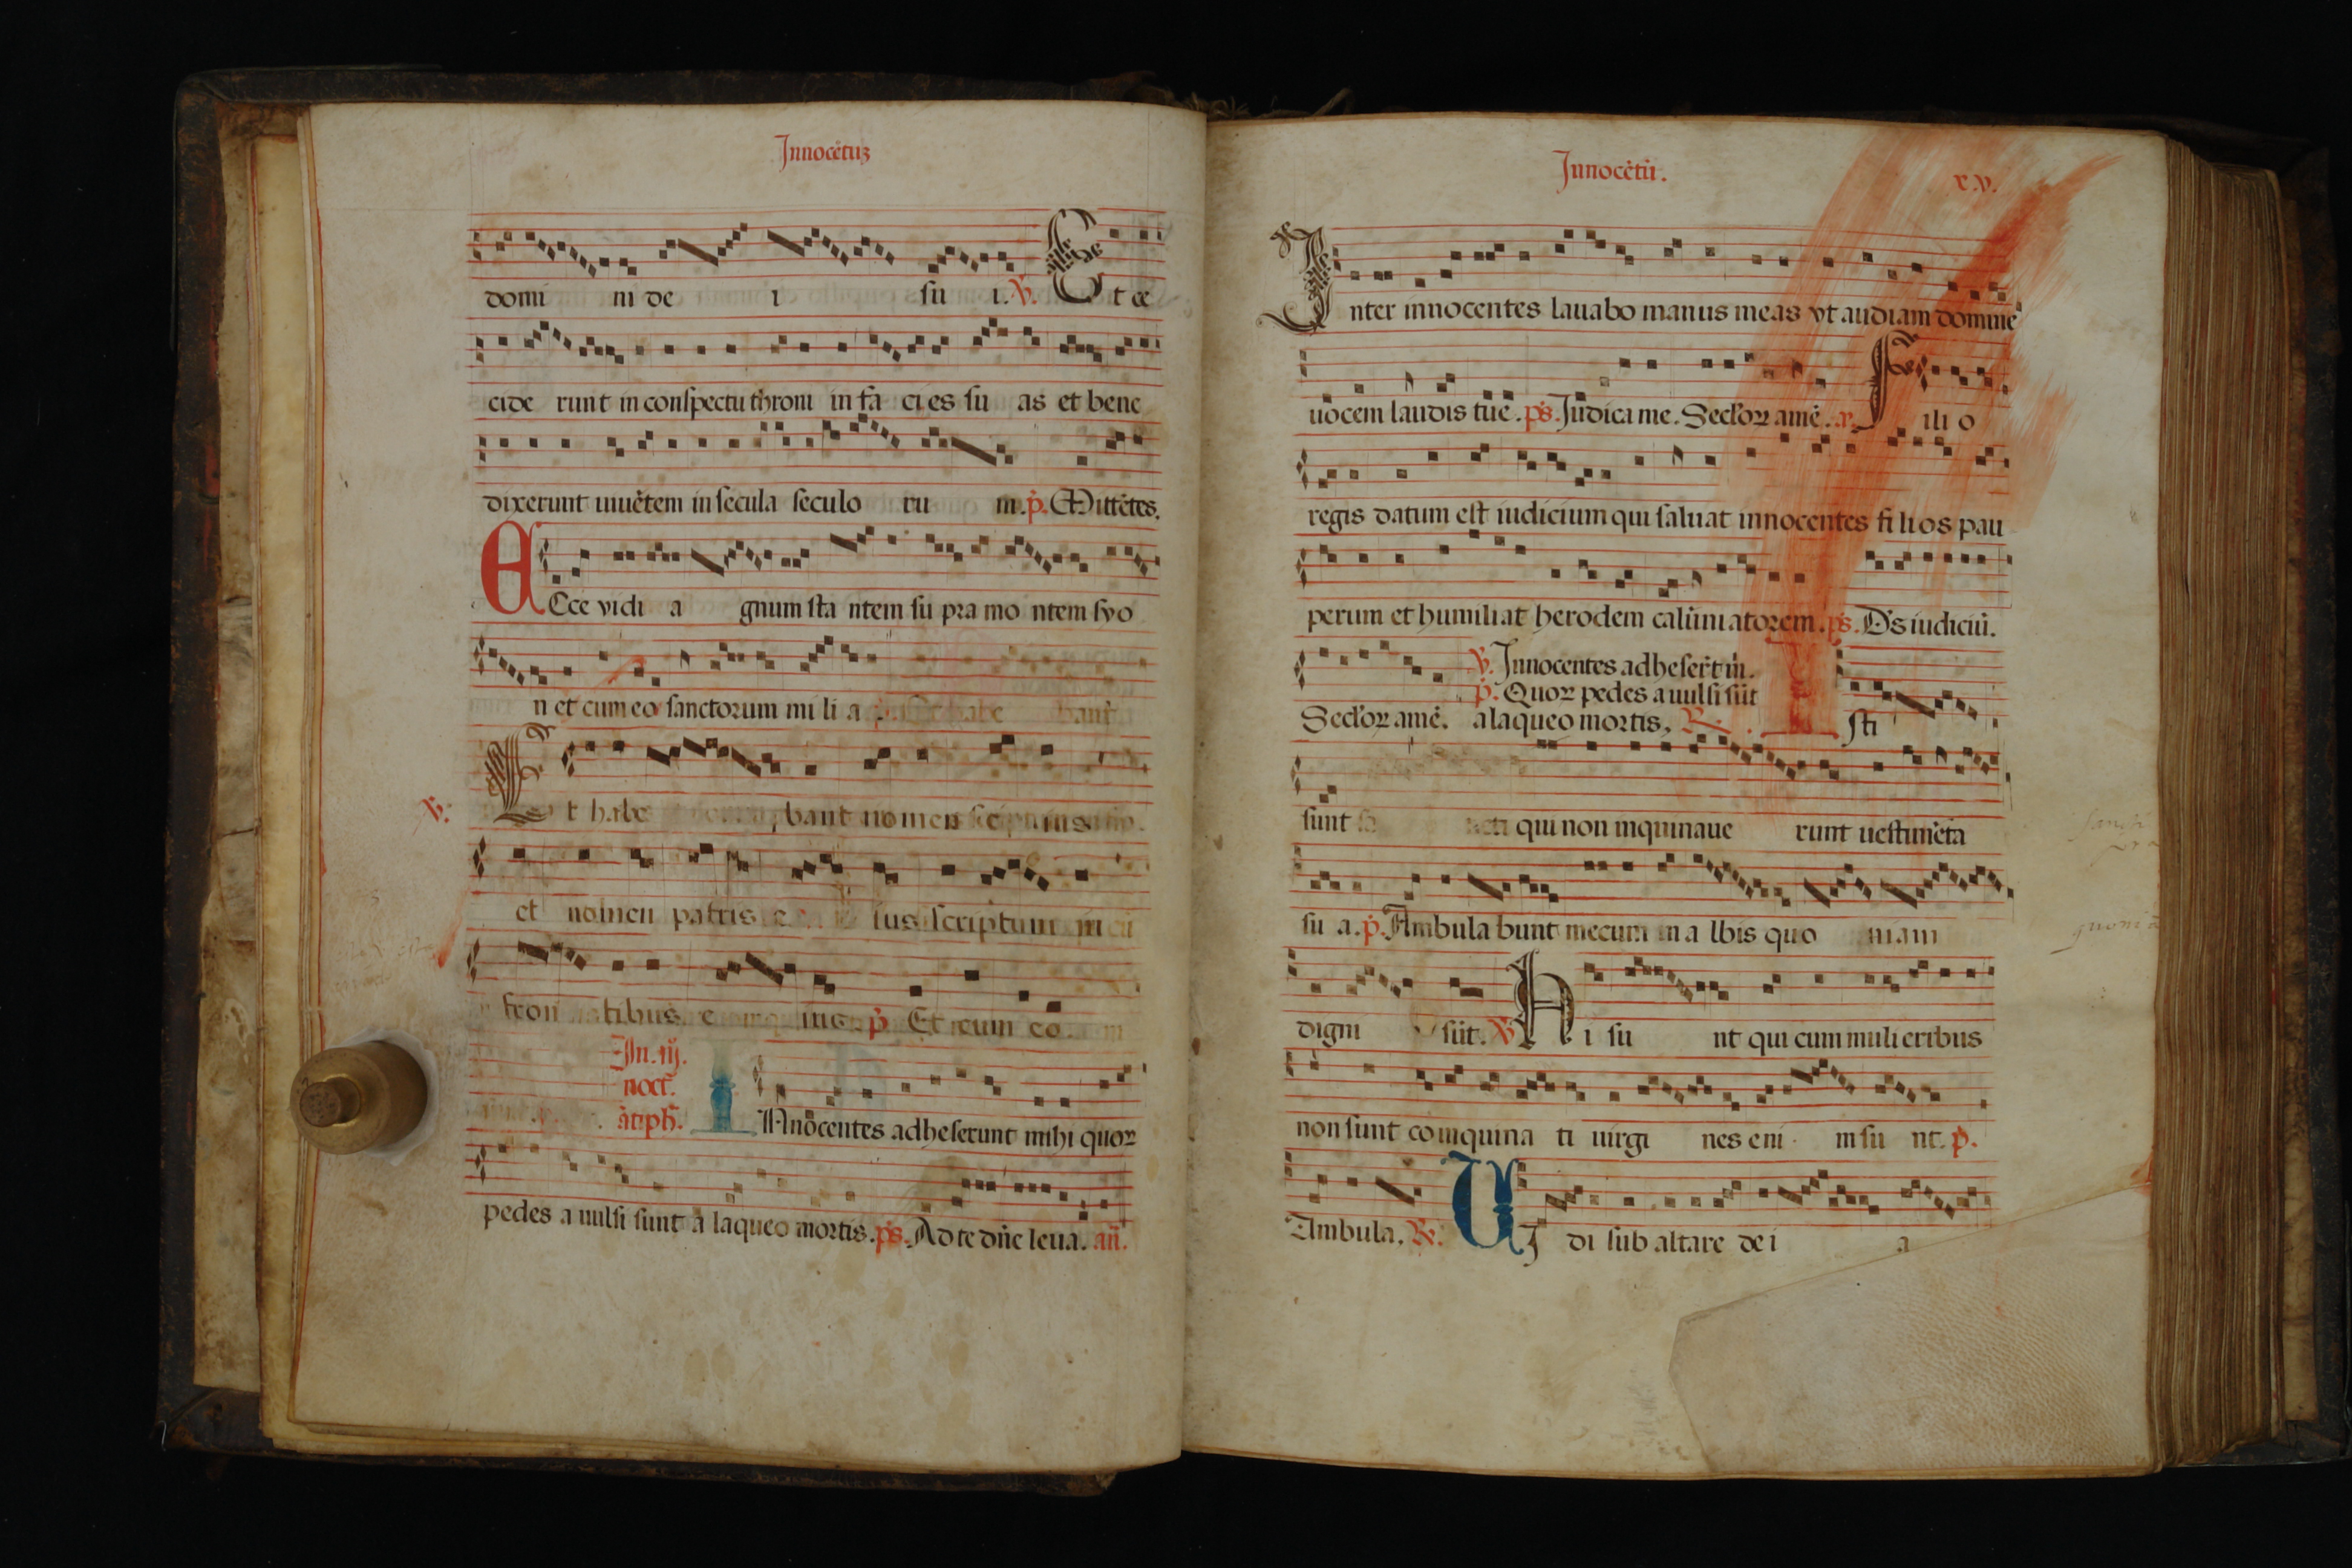 Innocētuȝ
domi ni de i su i. ℣. Et ce
cide runt in conspectu throni in fa ci es su as et bene
dixerunt uiuētem in secula seculo ru m. p̄. Mittētes.
ECce vidi a gnum sta ntem su pra mo ntem syo
n et cum eo sanctorum mi li a
℣. Et habe bant nomen
et nomen patris e ius scriptum in
fron tibus e ius p̄. Et cum eo
In. iij.
noct̄.
āᵗiph̄.
INnocentes adheserunt mihi quoꝝ
pedes a uulsi sunt a laqueo mortis. ps̄. Ad te dn̄e leua. an̄.
Innocētū.
xv.
Inter innocentes lauabo manus meas vt audiam domine
uocem laudis tue. ps̄. Iudica me. Sec̄loꝝ amē. a. Fili o
regis datum est iudicium qui saluat innocentes fi li os pau
perum et humiliat herodem calūniatorem. ps̄. Ds̄ iudiciū.
℣. Innocentes adheserūt m̄.
p̄. Quoꝝ pedes auulsi sūt
Sec̄loꝝ amē. a laqueo mortis. ℟. Isti
sunt qui non inquinaue runt uestimēta
su a. p̄. Ambula bunt mecum in a lbis quo niam
digni sūt. ℣. Hi su nt qui cum muli eribus
non sunt coinquina ti uirgi nes eni m su nt. p̄.
Ambula. ℟. UI di sub altare de i a